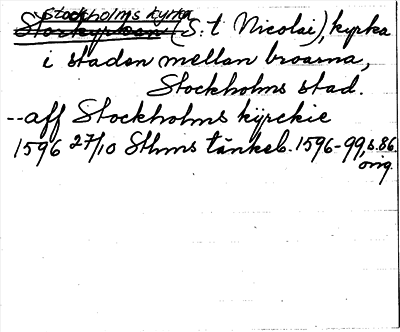 Stockholms kyrka
Storkyrkan (S:t Nicolai), kyrka
i staden mellan broarna,
Stockholms stad.
--aff Stockholms kÿrckie
1596 27/10 Sthms tänkeb. 1596-99, s. 86
orig.